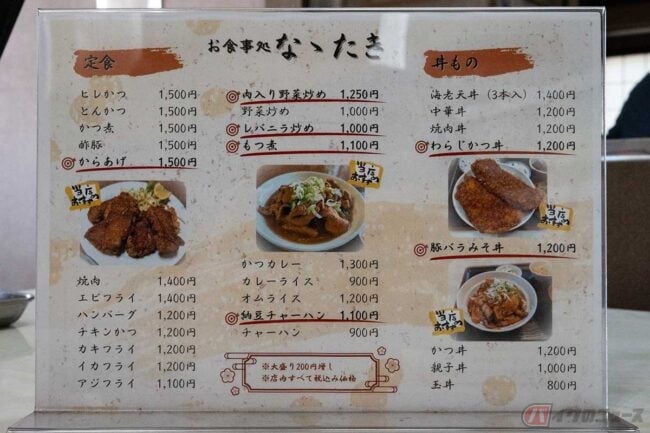 お食事処 なゝたき
定食
ヒレかつ 1,500円
とんかつ 1,500円
かつ煮 1,500円
酢豚 1,500円
からあげ 1,500円
当店おすすめ
焼肉 1,400円
エビフライ 1,400円
ハンバーグ 1,200円
チキンかつ 1,200円
カキフライ 1,200円
イカフライ 1,200円
アジフライ 1,100円
肉入り野菜炒め 1,250円
野菜炒め 1,000円
レバニラ炒め 1,000円
もつ煮 1,100円
当店おすすめ
かつカレー 1,300円
カレーライス 900円
オムライス 1,200円
納豆チャーハン 1,100円
チャーハン 900円
※大盛り200円増し
※店内すべて税込み価格
丼もの
海老天丼（3本入） 1,400円
中華丼 1,200円
焼肉丼 1,200円
わらじかつ丼 1,200円
当店おすすめ
豚バラみそ丼 1,200円
当店おすすめ
かつ丼 1,200円
親子丼 1,000円
玉丼 800円
バイクのニュース